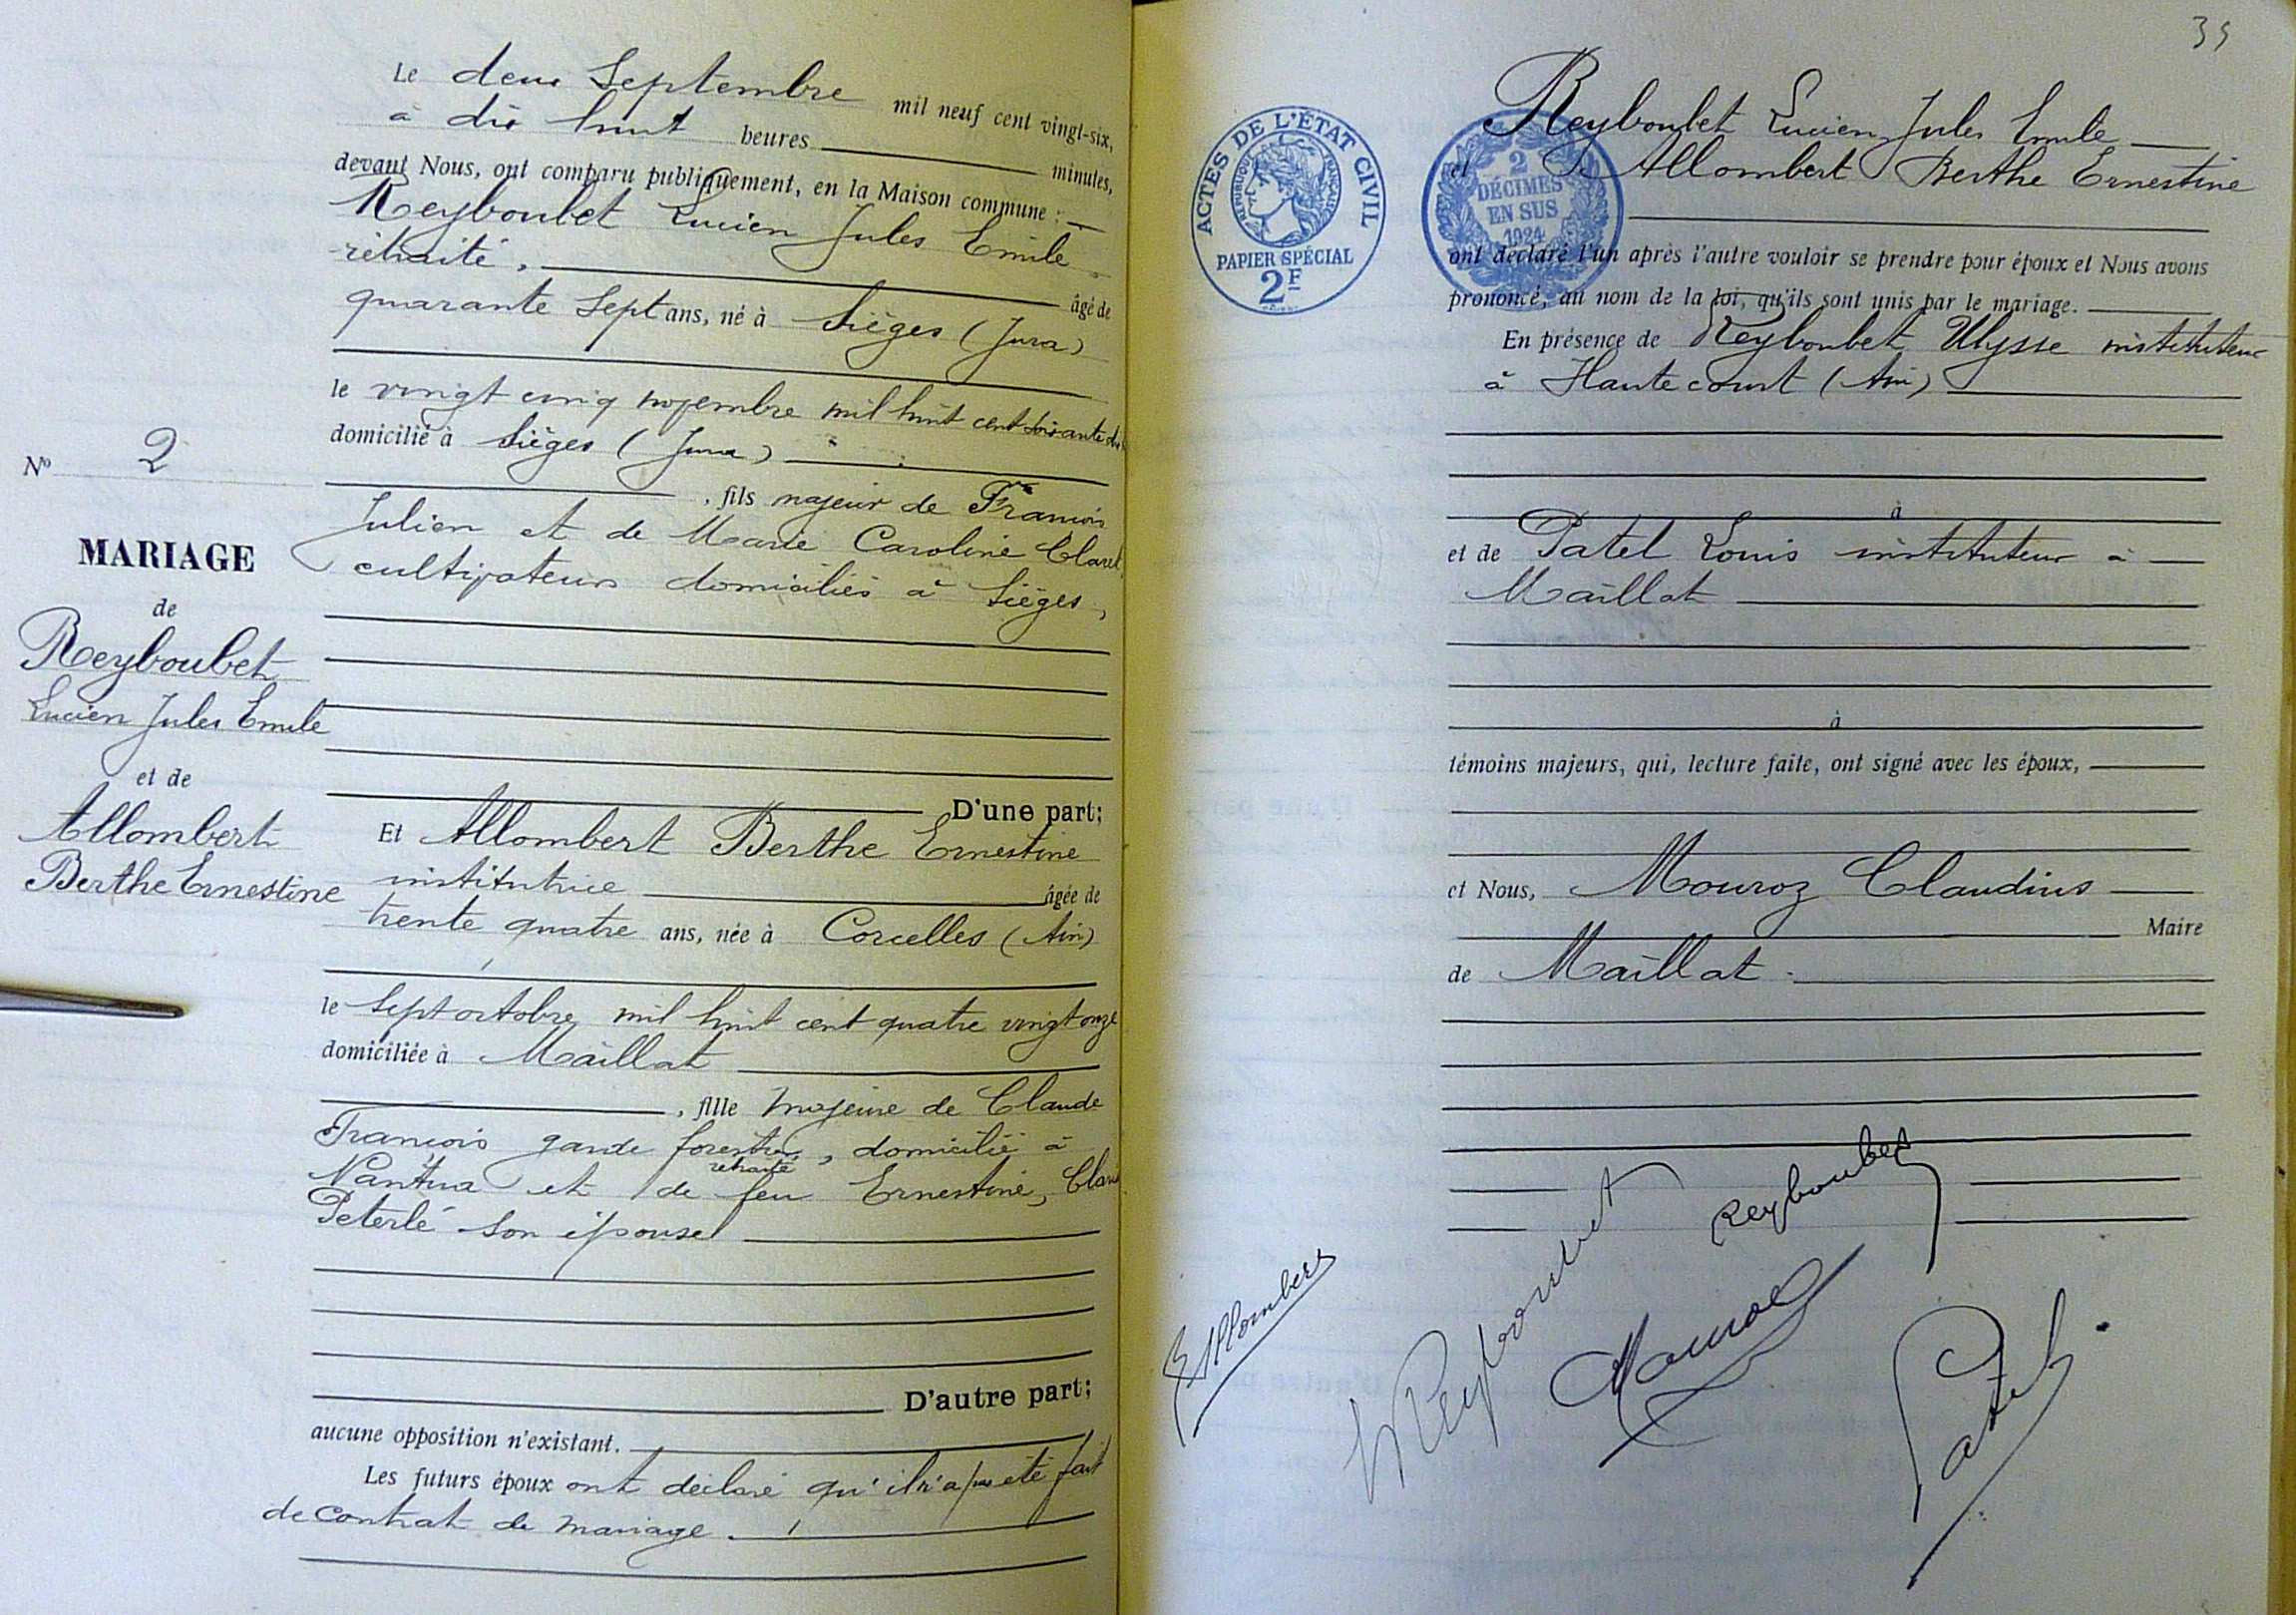 Le deux Septembre mil neuf cent vingt-six,
à dix huit heures minutes,
devant Nous, ont comparu publiquement, en la Maison commune :
Reyboubet Lucien Jules Emile
retraité, âgé de
quarante Sept ans, né à Sièges (Jura)
le vingt cinq novembre mil huit cent soixante dix
domicilié à Sièges (Jura)
, fils majeur de François
Julien et de Marie Caroline Claret
cultivateurs domiciliés à Sièges,
D'une part;
Et Allombert Berthe Ernestine
institutrice âgée de
trente quatre ans, née à Corcelles (Ain)
le Sept octobre mil huit cent quatre vingt onze
domiciliée à Maillat
, fille majeure de Claude
François garde forestier, domicilié à
retraité
Nantua et de feu Ernestine,
Peterlé son épouse
D'autre part;
aucune opposition n'existant.
Les futurs époux ont déclaré qu'il n'a pas été fait
de contrat de mariage.
N° 2
MARIAGE
de
Reyboubet
Lucien Jules Emile
et de
Allombert
Berthe Ernestine
39
ACTES DE L'ÉTAT CIVIL
RÉPUBLIQUE FRANÇAISE
PAPIER SPÉCIAL
2F
2
DÉCIMES
EN SUS
1924
Reyboubet Lucien Jules Emile
et Allombert Berthe Ernestine
ont déclaré l'un après l'autre vouloir se prendre pour époux et Nous avons
prononcé, au nom de la loi, qu'ils sont unis par le mariage.
En présence de Reyboubet Ulysse instituteur
à Hautecourt (Ain)
à
et de Patel Louis instituteur à
Maillat
à
témoins majeurs, qui, lecture faite, ont signé avec les époux,
et Nous, Mouroz Claudius
Maire
de Maillat.
Reyboubet
Reyboubet
B Allombert
Mouroz
Patel